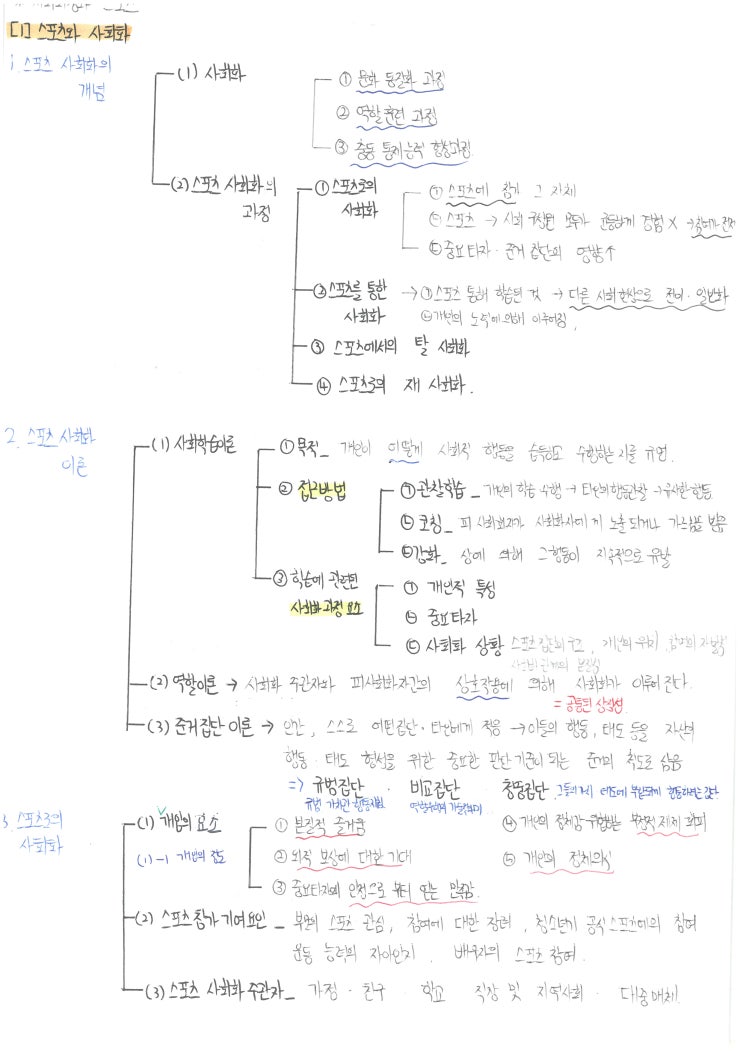 [1] 스포츠와 사회화
1. 스포츠 사회화의 개념
(1) 사회화
① 문화 동질화 과정
② 역할훈련 과정
③ 충동 통제능력 향상과정.
(2) 스포츠 사회화의 과정
① 스포츠로의 사회화
㉠ 스포츠에 참가 그 자체
㉡ 스포츠 → 사회 구성원 모두가 균등하게 경험 X → 참여가 전제
㉢ 중요타자 · 준거 집단의 영향↑
② 스포츠를 통한 사회화
→ ㉠ 스포츠 통해 학습된 것 → 다른 사회현상으로 전이 · 일반화
㉡ 개인의 노력에 의해 이루어짐.
③ 스포츠에서의 탈 사회화
④ 스포츠로의 재 사회화.
2. 스포츠 사회화 이론
(1) 사회학습이론
① 목적_ 개인이 어떻게 사회적 행동을 습득하고 수행하는지를 규명.
② 접근방법
㉠ 관찰학습_ 개인의 학습 수행 → 타인의 행동관찰 → 유사한 행동
㉡ 코칭_ 피 사회화자가 사회화자에게 노출되거나 가르침을 받음
㉢ 강화_ 상에 의해 그 행동이 지속적으로 유발
③ 학습에 관련된 사회화 과정 요소
㉠ 개인적 특성
㉡ 중요타자
㉢ 사회화 상황 스포츠 집단의 구조, 개인의 위치, 참여의 자발성
사회적 관계의 본질성
(2) 역할이론 → 사회화 주관자와 피사회화자간의 상호작용에 의해 사회화가 이루어진다.
= 공통된 상징성
(3) 준거집단 이론 → 인간, 스스로 어떤집단 · 타인에게 적응 → 이들의 행동, 태도 등을 자신의
행동 · 태도 형성을 위한 중요한 판단 기준이 되는 준거의 척도로 삼음
⇒ 규범집단 · 비교집단 청중집단
3. 스포츠로의 사회화
(1) 개인의 요소
(1)-1 개인의 정도
① 본질적 즐거움
② 외적 보상에 대한 기대
③ 중요타자의 인정으로 부터 얻는 만족감.
⑤ 개인의 정체의식
(2) 스포츠 참가 기여요인_ 부모의 스포츠 관심, 참여에 대한 장려, 청소년기 공식 스포츠에의 참여
운동 능력의 자아인지, 배우자의 스포츠 참여.
(3) 스포츠 사회화 주관자_ 가정 · 친구 · 학교 직장 및 지역사회 · 대중매체.